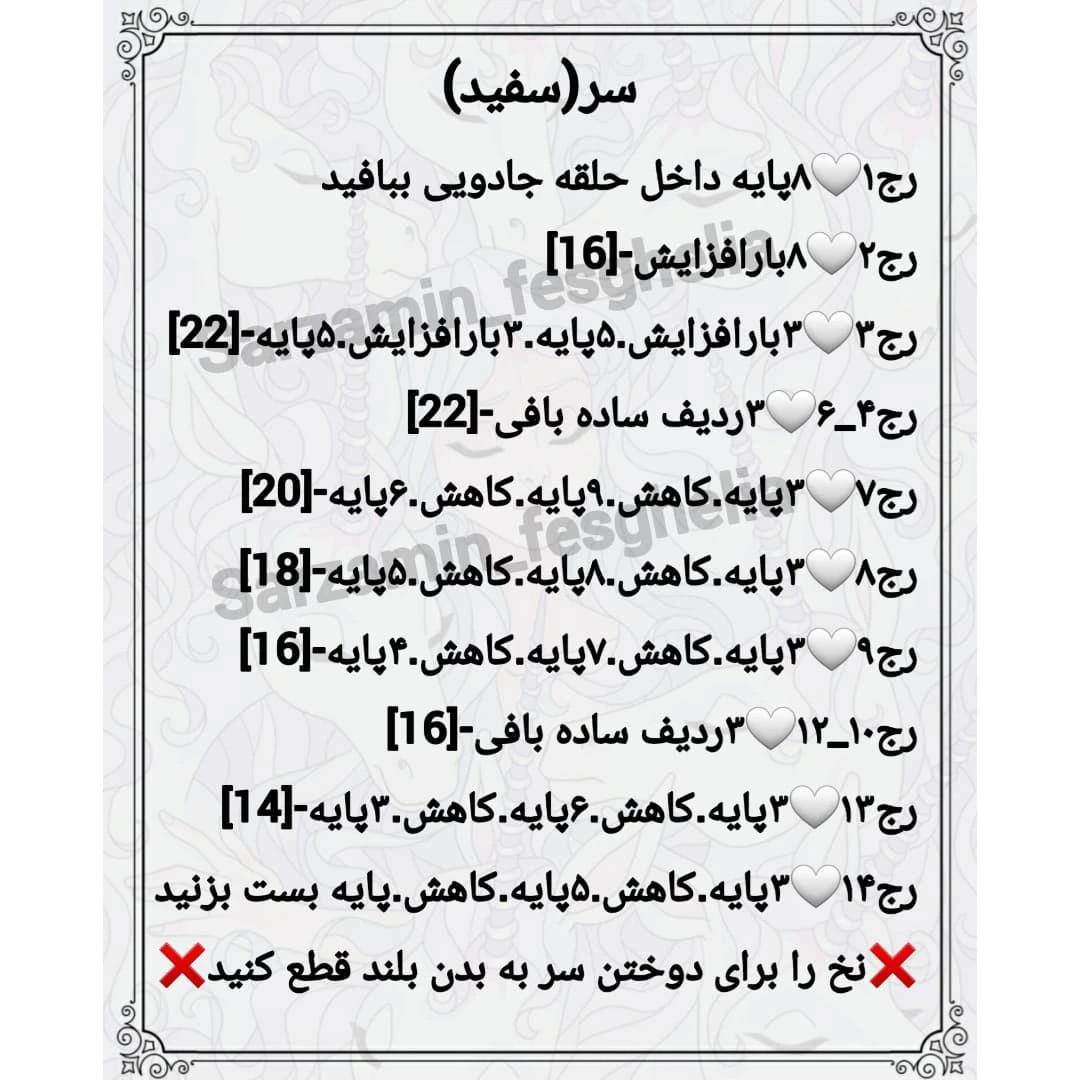 سر(سفید)
رج۱🤍۸پایه داخل حلقه جادویی ببافید
رج۲🤍۸بارافزایش-[16]
رج۳🤍۳بارافزایش.۵پایه.۳بارافزایش.۵پایه-[22]
رج۴_۶🤍۳ردیف ساده بافی-[22]
رج۷🤍۳پایه.کاهش.۹پایه.کاهش.۶پایه-[20]
رج۸🤍۳پایه.کاهش.۸پایه.کاهش.۵پایه-[18]
رج۹🤍۳پایه.کاهش.۷پایه.کاهش.۴پایه-[16]
رج۱۰_۱۲🤍۳ردیف ساده بافی-[16]
رج۱۳🤍۳پایه.کاهش.۶پایه.کاهش.۳پایه-[14]
رج۱۴🤍۳پایه.کاهش.۵پایه.کاهش.پایه بست بزنید
❌نخ را برای دوختن سر به بدن بلند قطع کنید❌
Sarzamin_fesghelia
Sarzamin_fesghelia